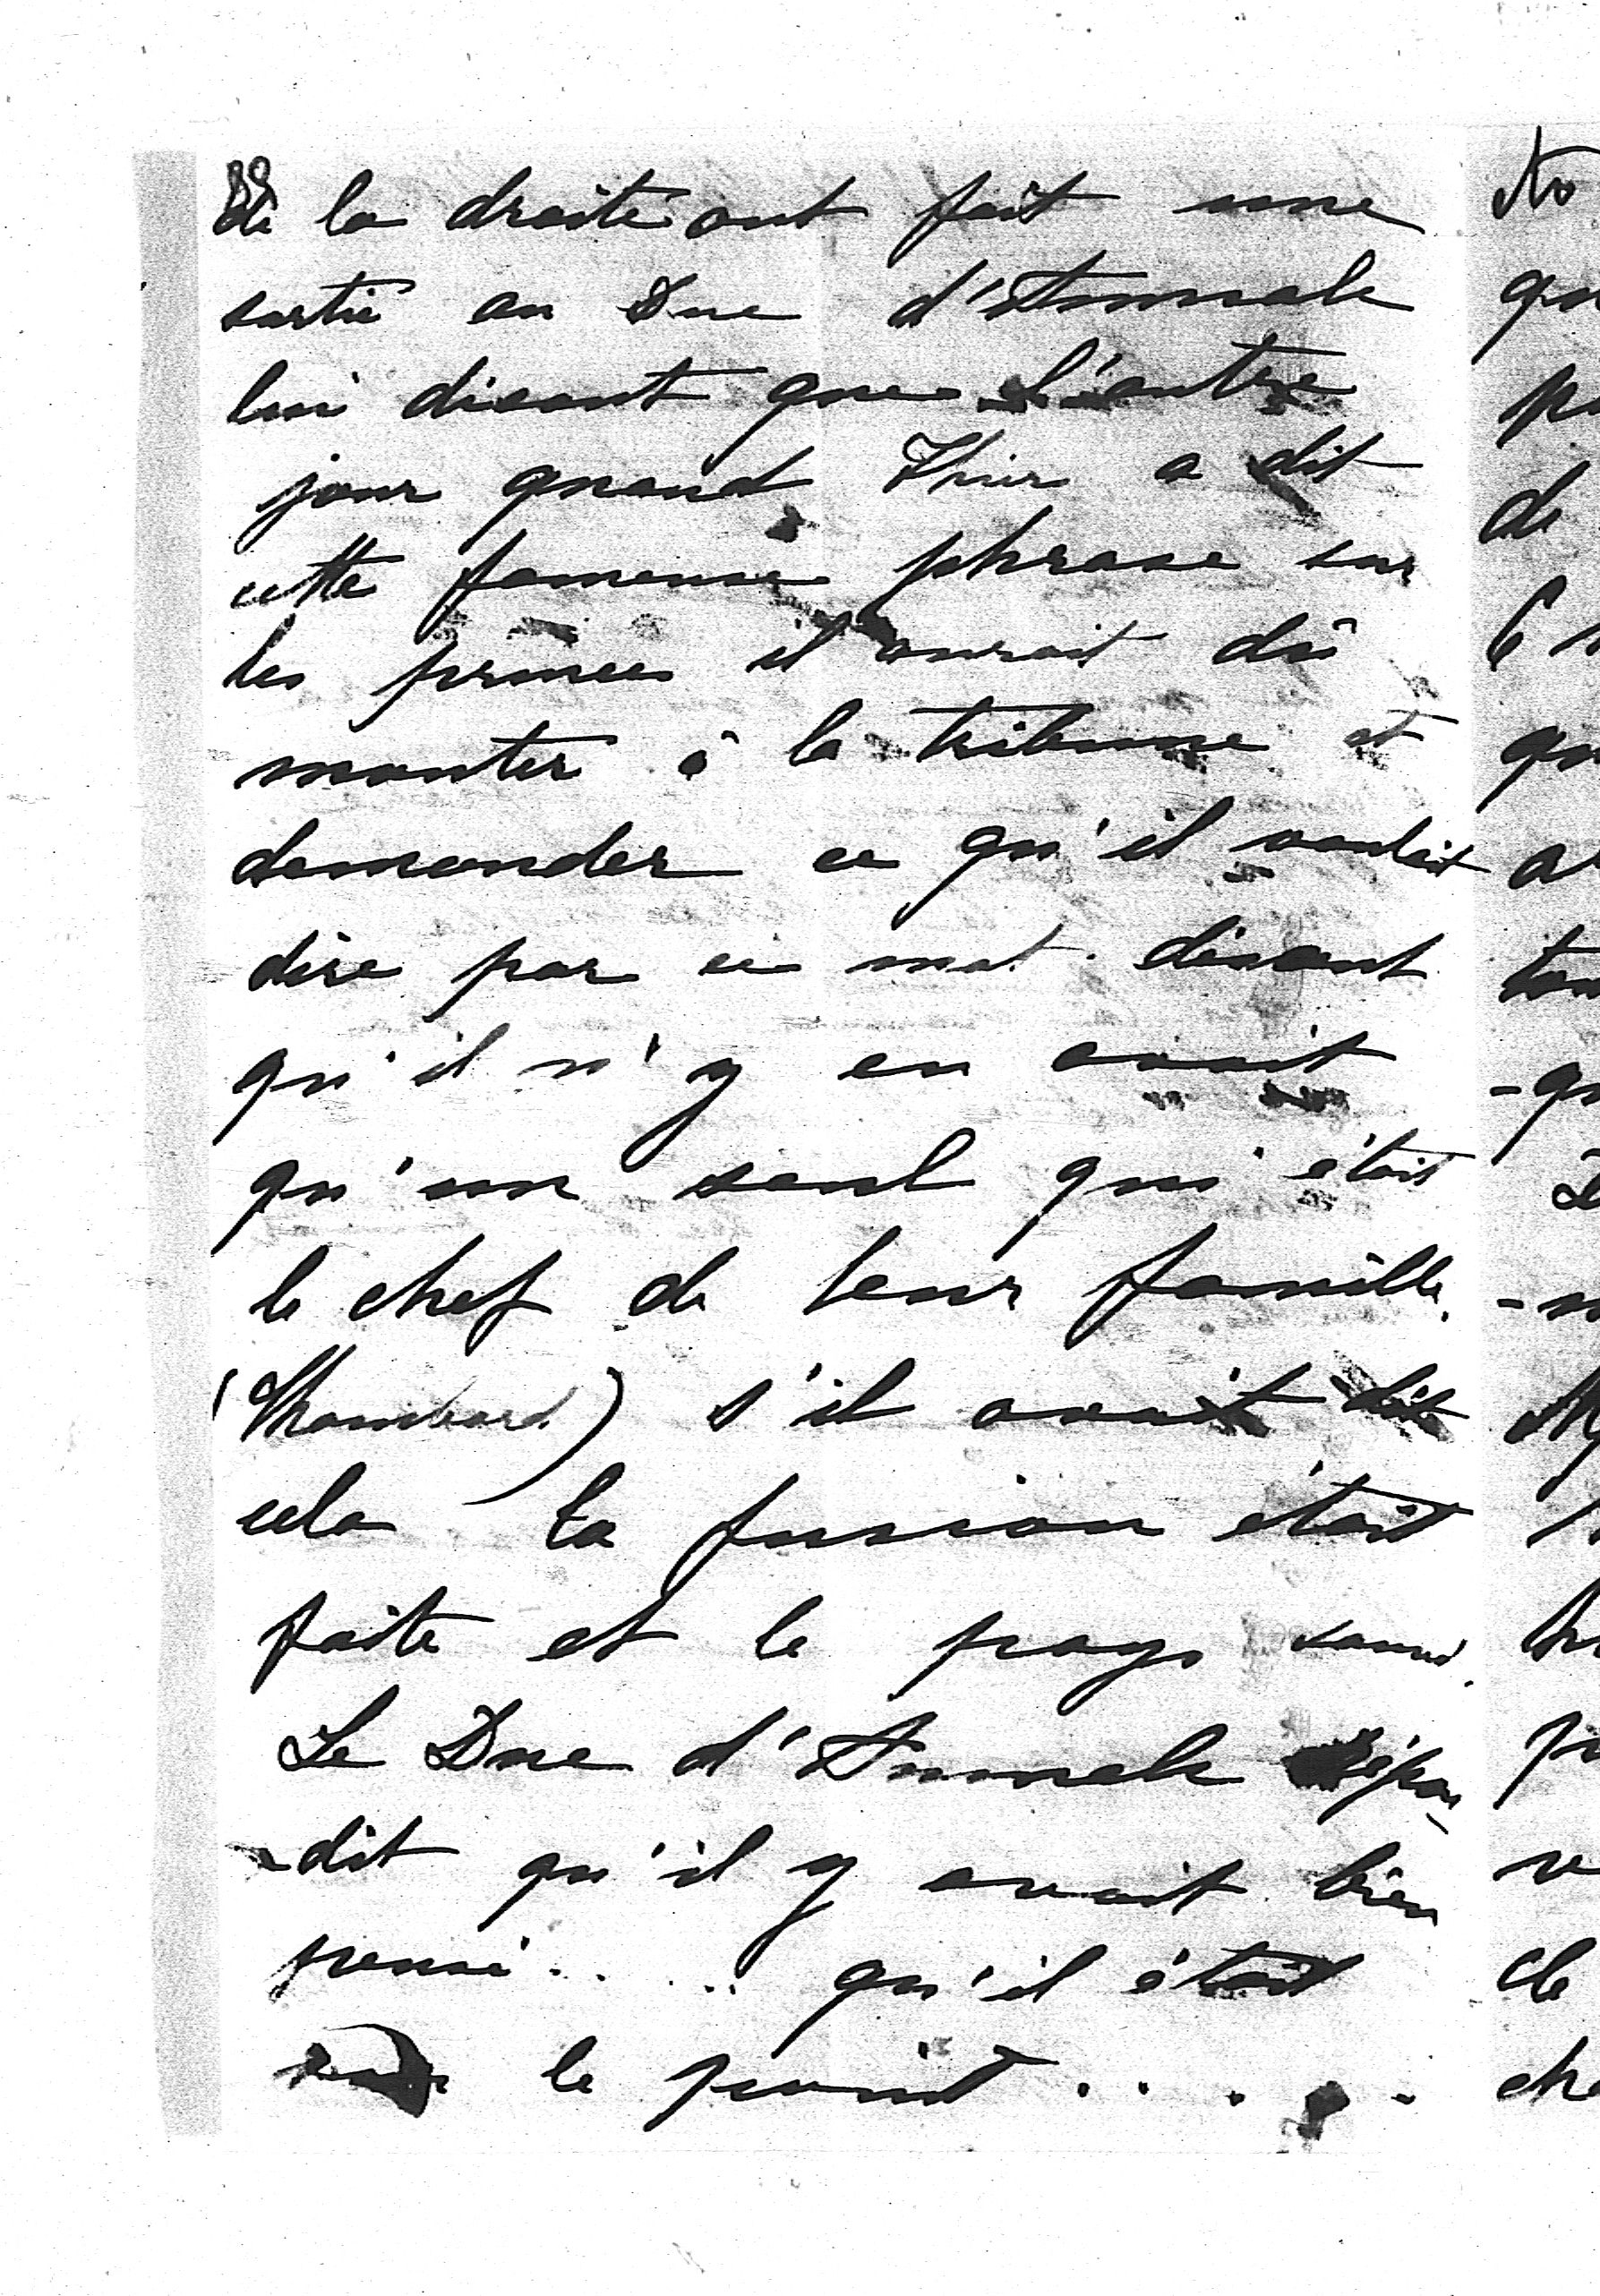 de la droite ont fait une
sortie au Duc d'Aumale
lui disant que l'autre
jour quand Thiers a dit
cette fameuse phrase sur
les princes il aurait dû
monter à la tribune et
demander ce qu'il voulait
dire par ce mot disant
qu'il n'y en avait
qu'un seul qui était
le chef de leur famille.
(Chambord) s'il avait dit
cela la fusion était
faite et le pays sauvé.
Le Duc d'Aumale répon
-dit qu'il y avait bien
pensé..... qu'il était
sur le point.....